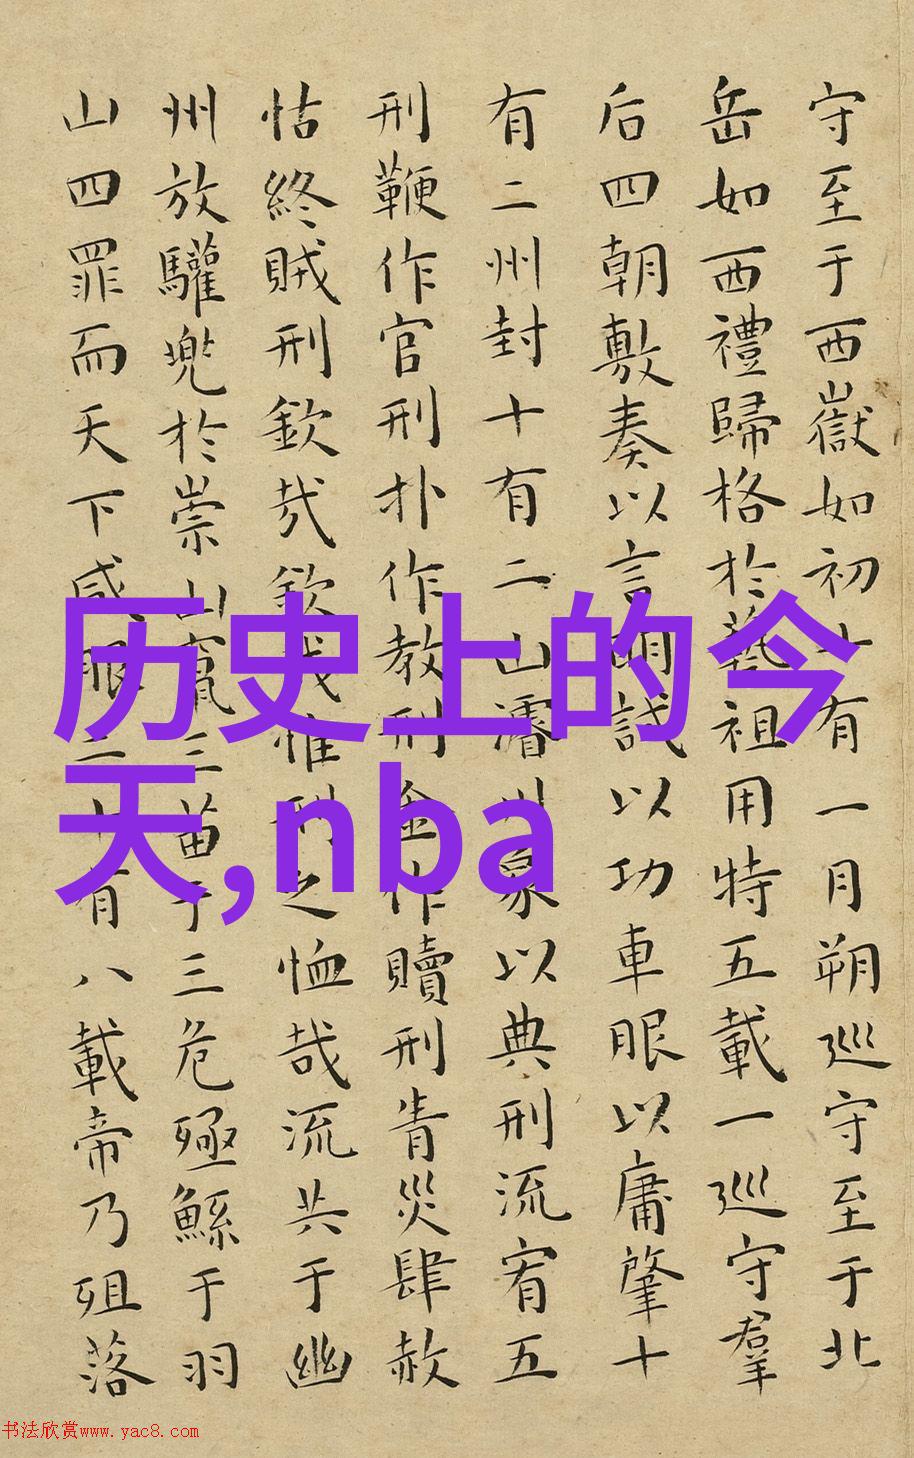 守至于西嶽如初十有一月朔巡守至于北
岳如西禮歸格於藝祖用特五載一巡守羣
后四朝敷奏以言明試以功車服以庸肇十
有二州封十有二山濬川象以典刑流宥五
刑鞭作官刑扑作教刑金作贖刑眚災肆赦
怙終賊刑欽哉欽哉惟刑之恤哉流共于幽
州放驩兜於崇山竄三苗于三危殛鯀于羽
山四罪而天下咸服二十有八載帝乃殂落
历史上的今
天,nba
书法欣赏www.yac8.com